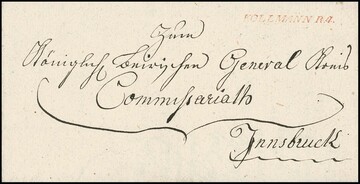 VOLLMANN R4.
Zum
Königlich Beirischen General Kreis
Commissariath
Innsbruck